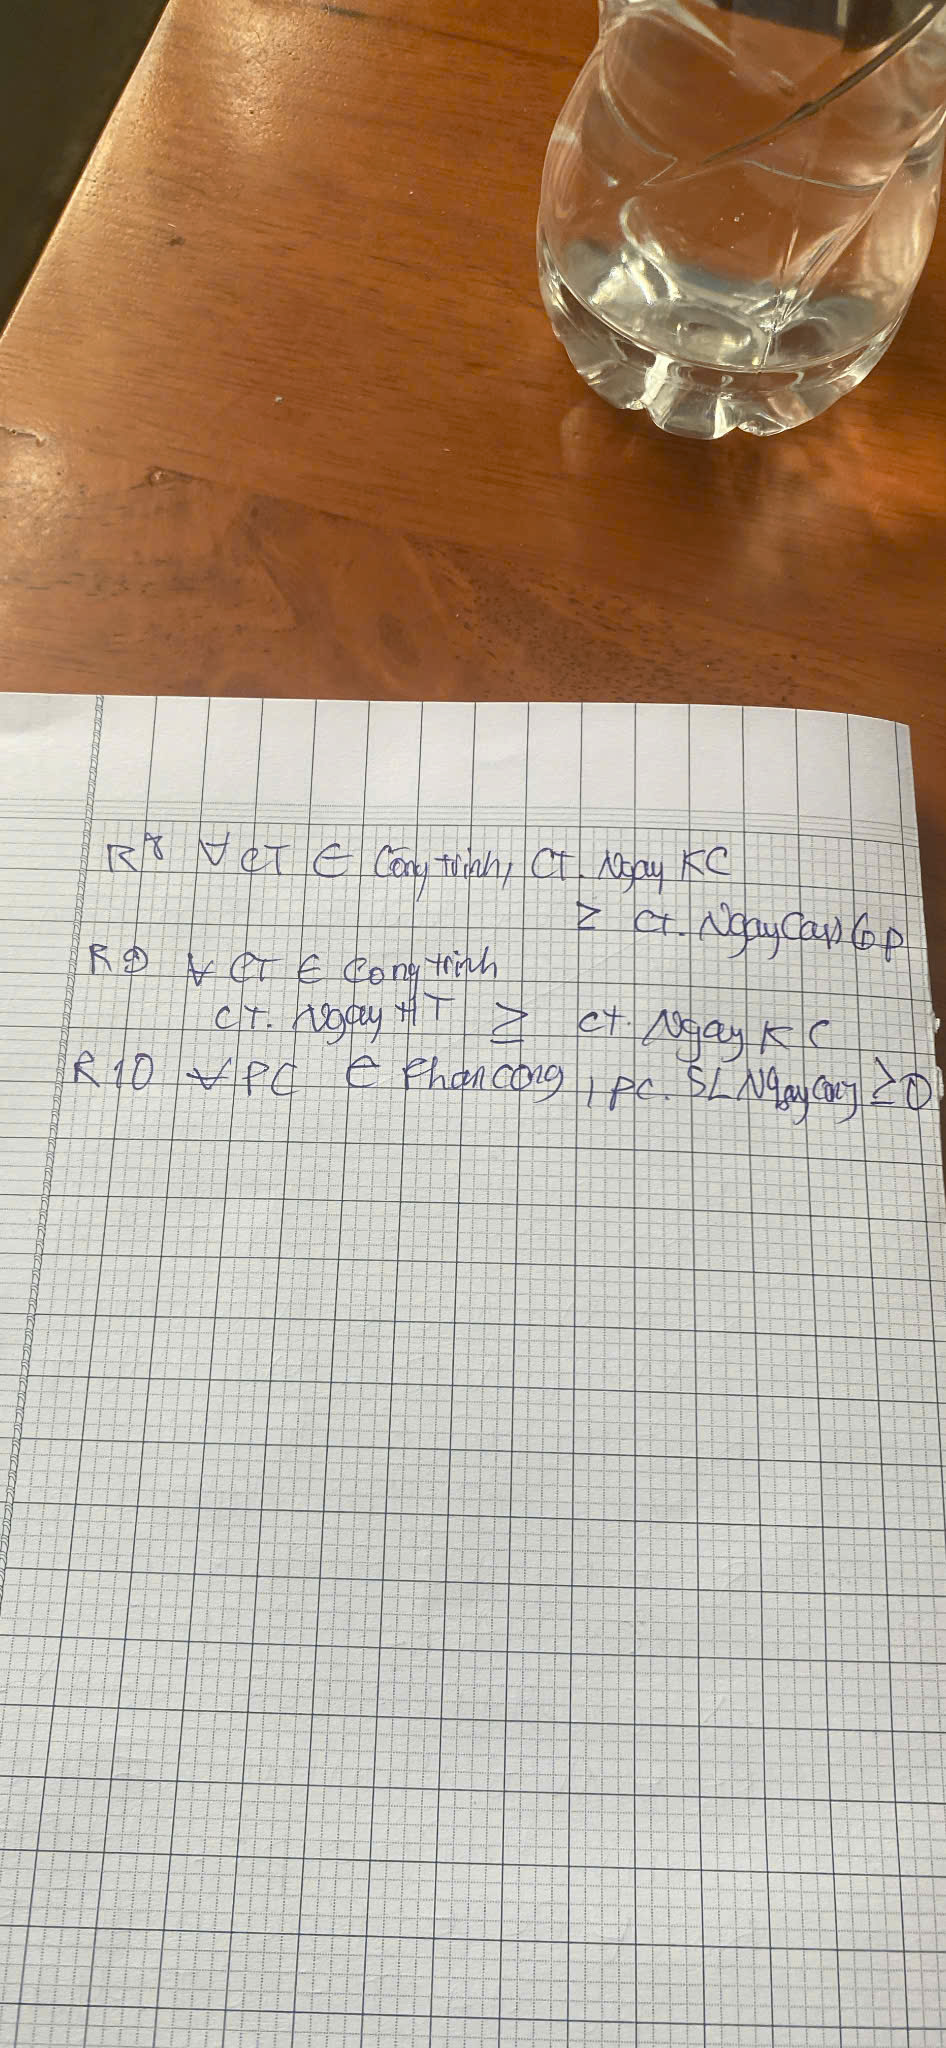 R8 ∀ CT ∈ Công trình, CT. Ngay KC
≥ CT. NgayCap GP
R9 ∀ CT ∈ Congtrinh
CT. Ngay HT ≥ CT. Ngay KC
R10 ∀ PC ∈ Phancong, PC. SLNgayCong ≥ 0